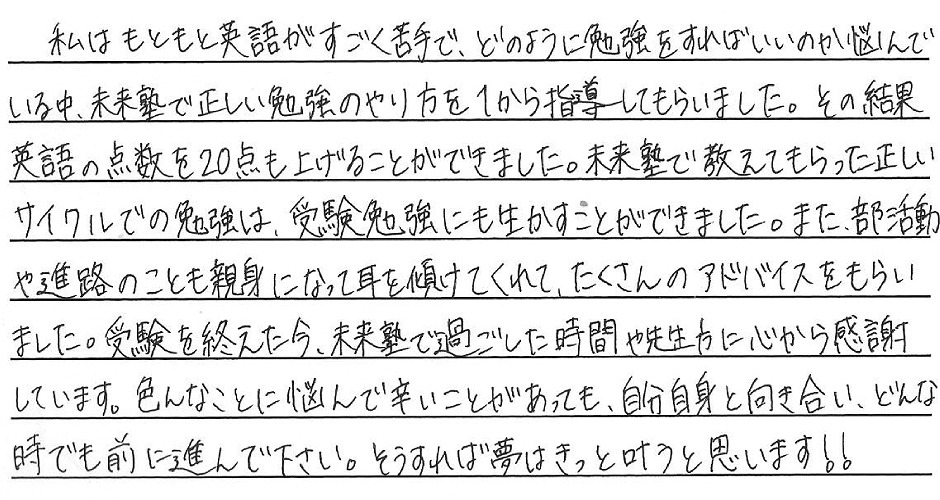 私はもともと英語がすごく苦手で、どのように勉強をすればいいのか悩んで
いる中、未来塾で正しい勉強のやり方を1から指導してもらいました。その結果
英語の点数を20点も上げることができました。未来塾で教えてもらった正しい
サイクルでの勉強は、受験勉強にも生かすことができました。また、部活動
や進路のことも親身になって耳を傾けてくれて、たくさんのアドバイスをもらい
ました。受験を終えた今、未来塾で過ごした時間や先生方に心から感謝
しています。色んなことに悩んで辛いことがあっても、自分自身と向き合い、どんな
時でも前に進んで下さい。そうすれば夢はきっと叶うと思います!!